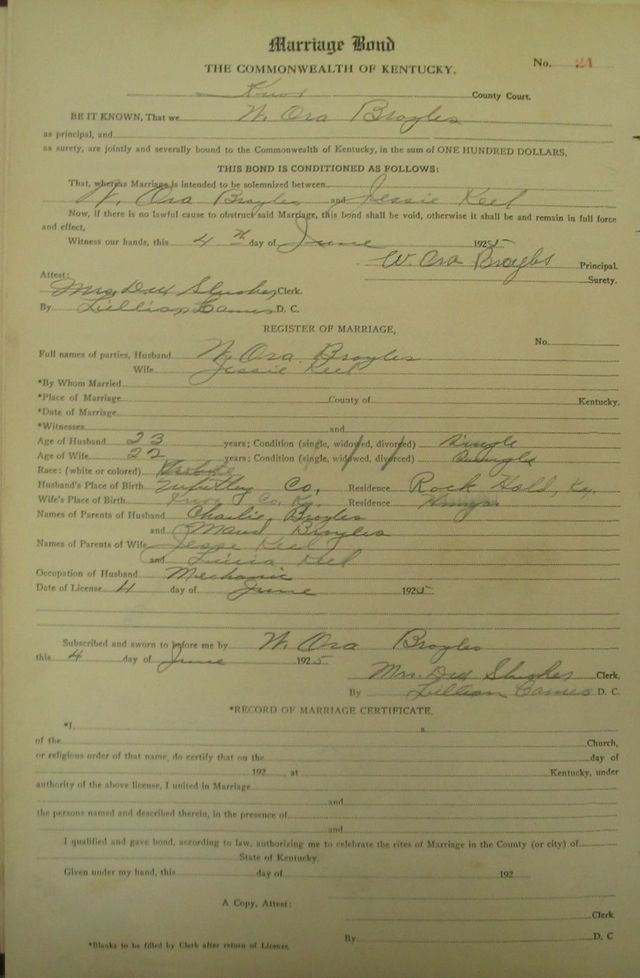 Marriage Bond
THE COMMONWEALTH OF KENTUCKY.
No. 21
Knox County Court.
BE IT KNOWN, That we W. Ora Broyles
as principal, and
as surety, are jointly and severally bound to the Commonwealth of Kentucky, in the sum of ONE HUNDRED DOLLARS.
THIS BOND IS CONDITIONED AS FOLLOWS:
That, whereas Marriage is intended to be solemnized between
W. Ora Broyles and Jessie Keel
Now, if there is no lawful cause to obstruct said Marriage, this bond shall be void, otherwise it shall be and remain in full force
and effect,
Witness our hands, this 4th day of June 1925
W. Ora Broyles Principal.
Surety.
Attest:
Mrs. Clerk.
By Lillian D. C.
REGISTER OF MARRIAGE,
No.
Full names of parties, Husband W. Ora Broyles
Wife Jessie Keel
*By Whom Married
*Place of Marriage County of Kentucky.
*Date of Marriage
*Witnesses and
Age of Husband 23 years; Condition (single, widowed, divorced) Single
Age of Wife 22 years; Condition (single, widowed, divorced) Single
Race: (white or colored)
Husband's Place of Birth Whitley Co. Residence Rock Hold, Ky.
Wife's Place of Birth Knox Co. Ky. Residence
Names of Parents of Husband Charlie Broyles
and Maud Broyles
Names of Parents of Wife Jesse Keel
and Keel
Occupation of Husband Mechanic
Date of License 4 day of June 1925
Subscribed and sworn to before me by W. Ora Broyles
this 4 day of June 1925.
Mrs. Clerk.
By Lillian D. C.
*RECORD OF MARRIAGE CERTIFICATE.
*I, a
of the Church,
or religious order of that name, do certify that on the day of
192 , at Kentucky, under
authority of the above license, I united in Marriage
and
the persons named and described therein, in the presence of
and
I qualified and gave bond, according to law, authorizing me to celebrate the rites of Marriage in the County (or city) of
State of Kentucky.
Given under my hand, this day of 192
A Copy, Attest:
Clerk
By D. C
*Blanks to be filled by Clerk after return of License.